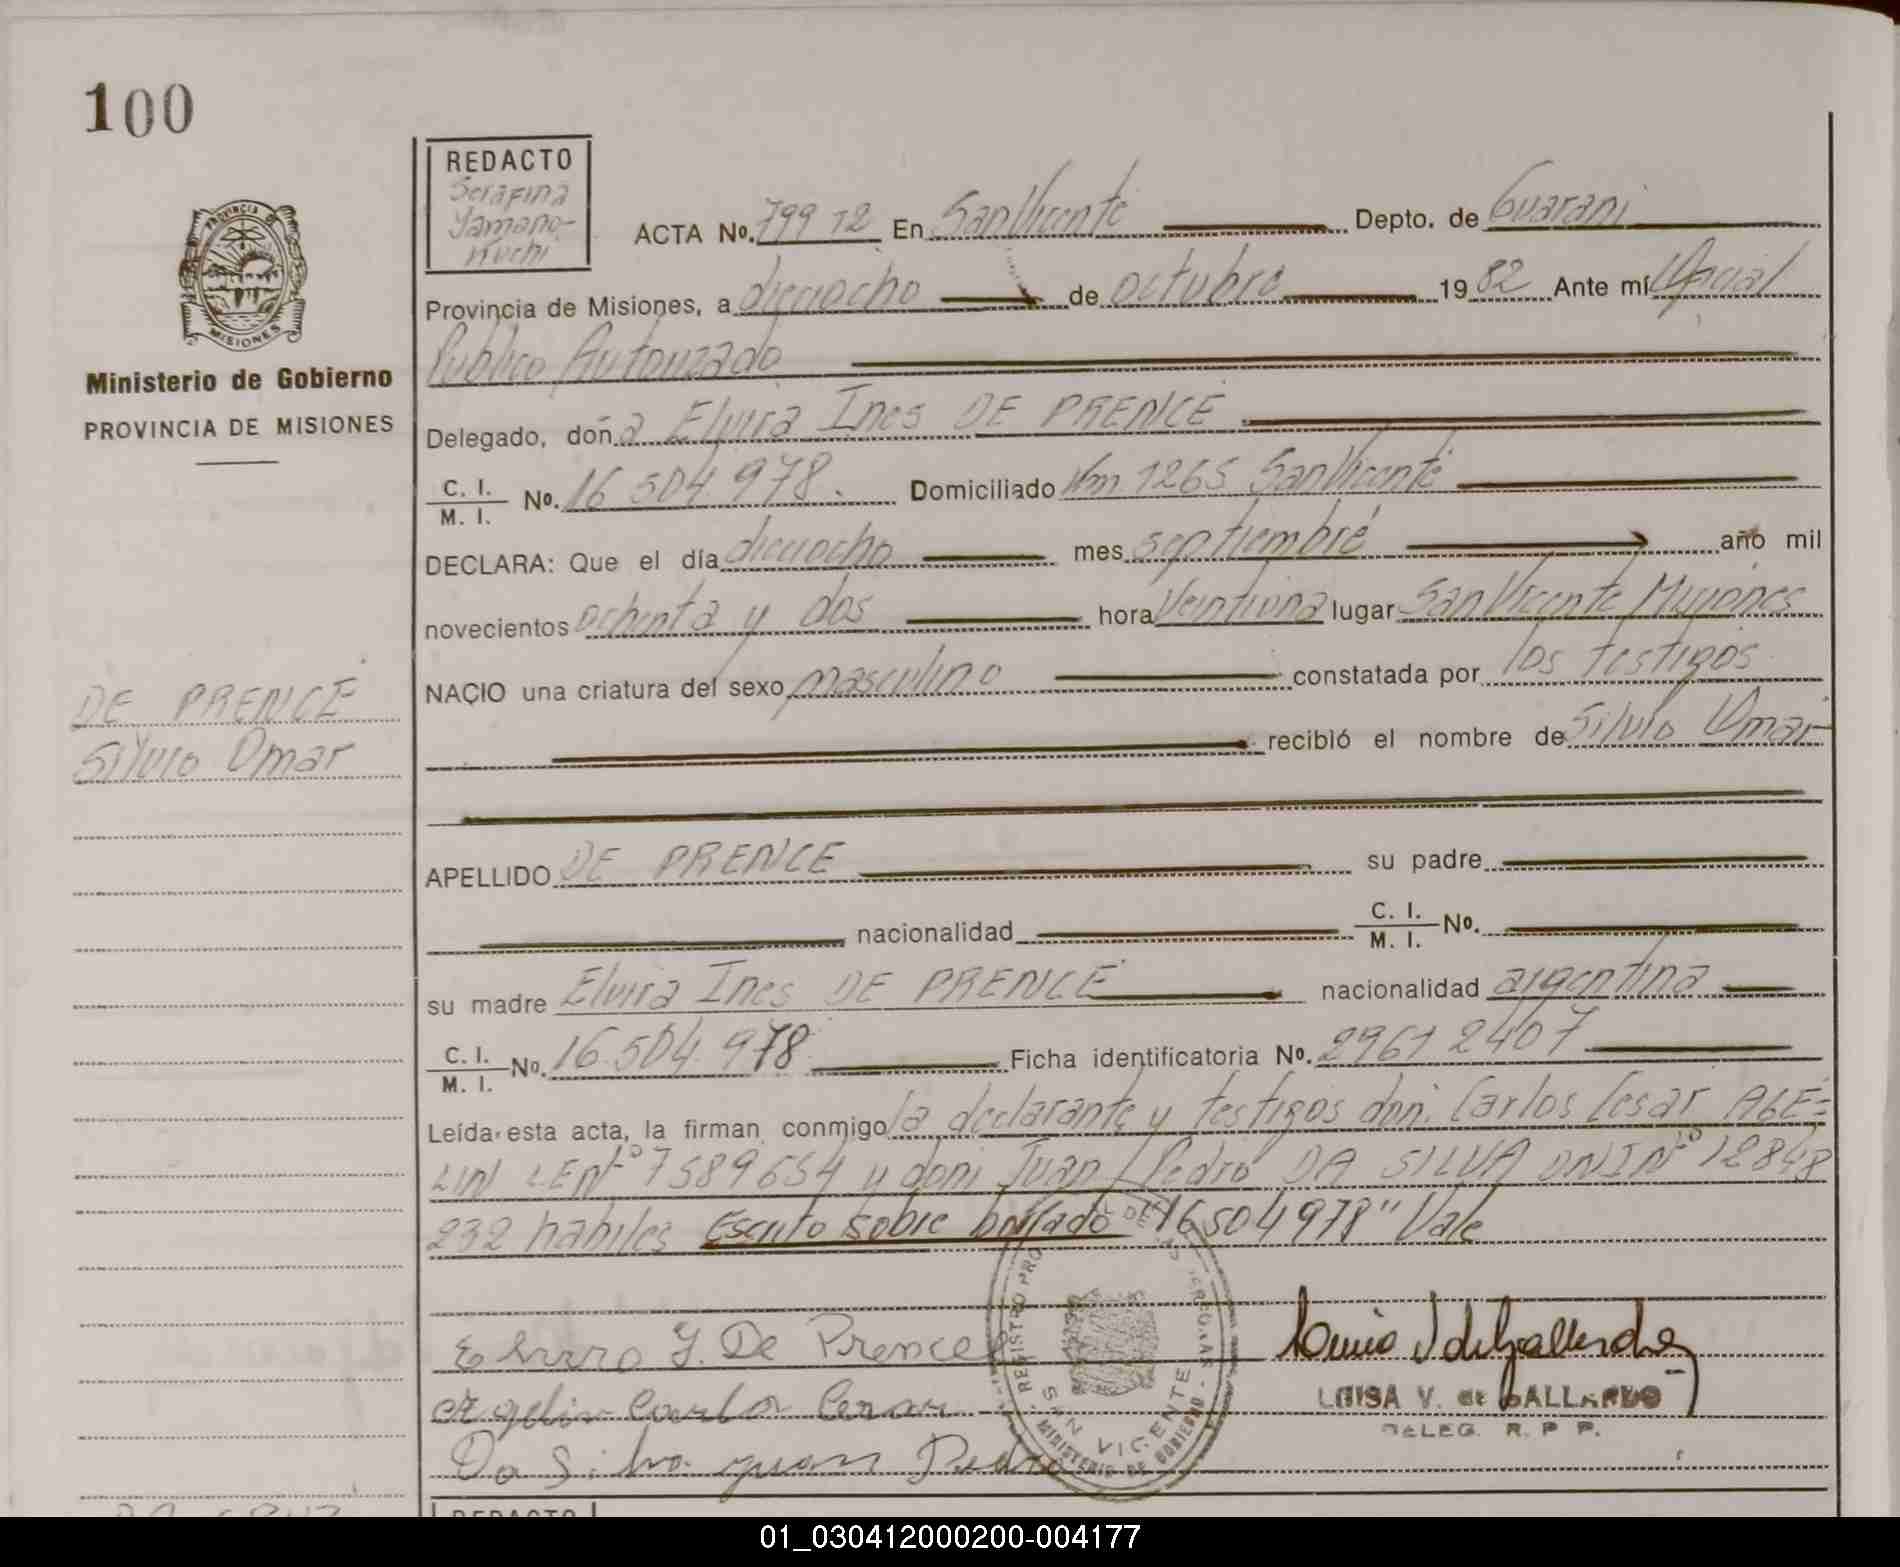 100
REDACTO
Serafina
Yamano-
Kuchi
PROVINCIA DE
MISIONES
Ministerio de Gobierno
PROVINCIA DE MISIONES
ACTA No. 799 T2 En San Vicente Depto. de Guarani
Provincia de Misiones, a dieciocho de octubre 1982 Ante mí Oficial
Publico Autorizado
Delegado, doña Elvira Ines DE PRENCE
C. I. / M. I. No. 16 504 978. Domiciliado Km. 1265 San Vicente
DECLARA: Que el día dieciocho mes septiembre año mil
novecientos ochenta y dos hora Veintiuna lugar San Vicente Misiones
NACIO una criatura del sexo masculino constatada por los testigos
recibió el nombre de Silvio Omar
DE PRENCE
Silvio Omar
APELLIDO DE PRENCE su padre
nacionalidad C. I. / M. I. No.
su madre Elvira Ines DE PRENCE nacionalidad argentina
C. I. / M. I. No. 16.504.978 Ficha identificatoria No. 2961 2407
Leída esta acta, la firman conmigo la declarante y testigos don: Carlos Cesar AGE=
LIN LE Nº 7589654 y don: Juan Pedro DA SILVA DNI Nº 12848
232 habiles Escrito sobre borrado "16504978" Vale
De Prence
Carlos Cesar
Da Silva Juan Pedro
REGISTRO PRO DE LAS PERSONAS
SAN VICENTE
MINISTERIO DE GOBIERNO
LUISA V. de GALLARDO
DELEG. R. P. P.
REDACTO
01_030412000200-004177